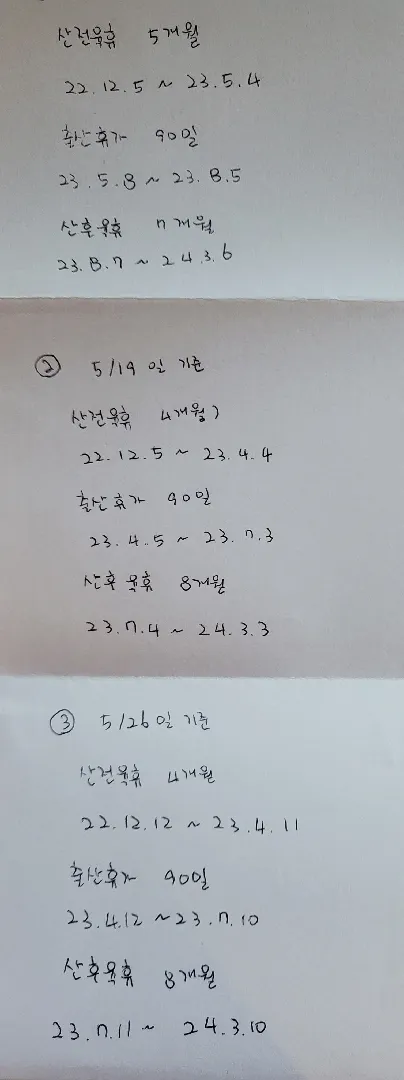 산전육휴 5개월
22.12.5 ~ 23.5.4
출산휴가 90일
23.5.8 ~ 23.8.5
산후육휴 7개월
23.8.7 ~ 24.3.6
② 5/19일 기준
산전육휴 4개월)
22.12.5 ~ 23.4.4
출산휴가 90일
23.4.5 ~ 23.7.3
산후육휴 8개월
23.7.4 ~ 24.3.3
③ 5/26일 기준
산전육휴 4개월
22.12.12 ~ 23.4.11
출산휴가 90일
23.4.12 ~ 23.7.10
산후육휴 8개월
23.7.11 ~ 24.3.10